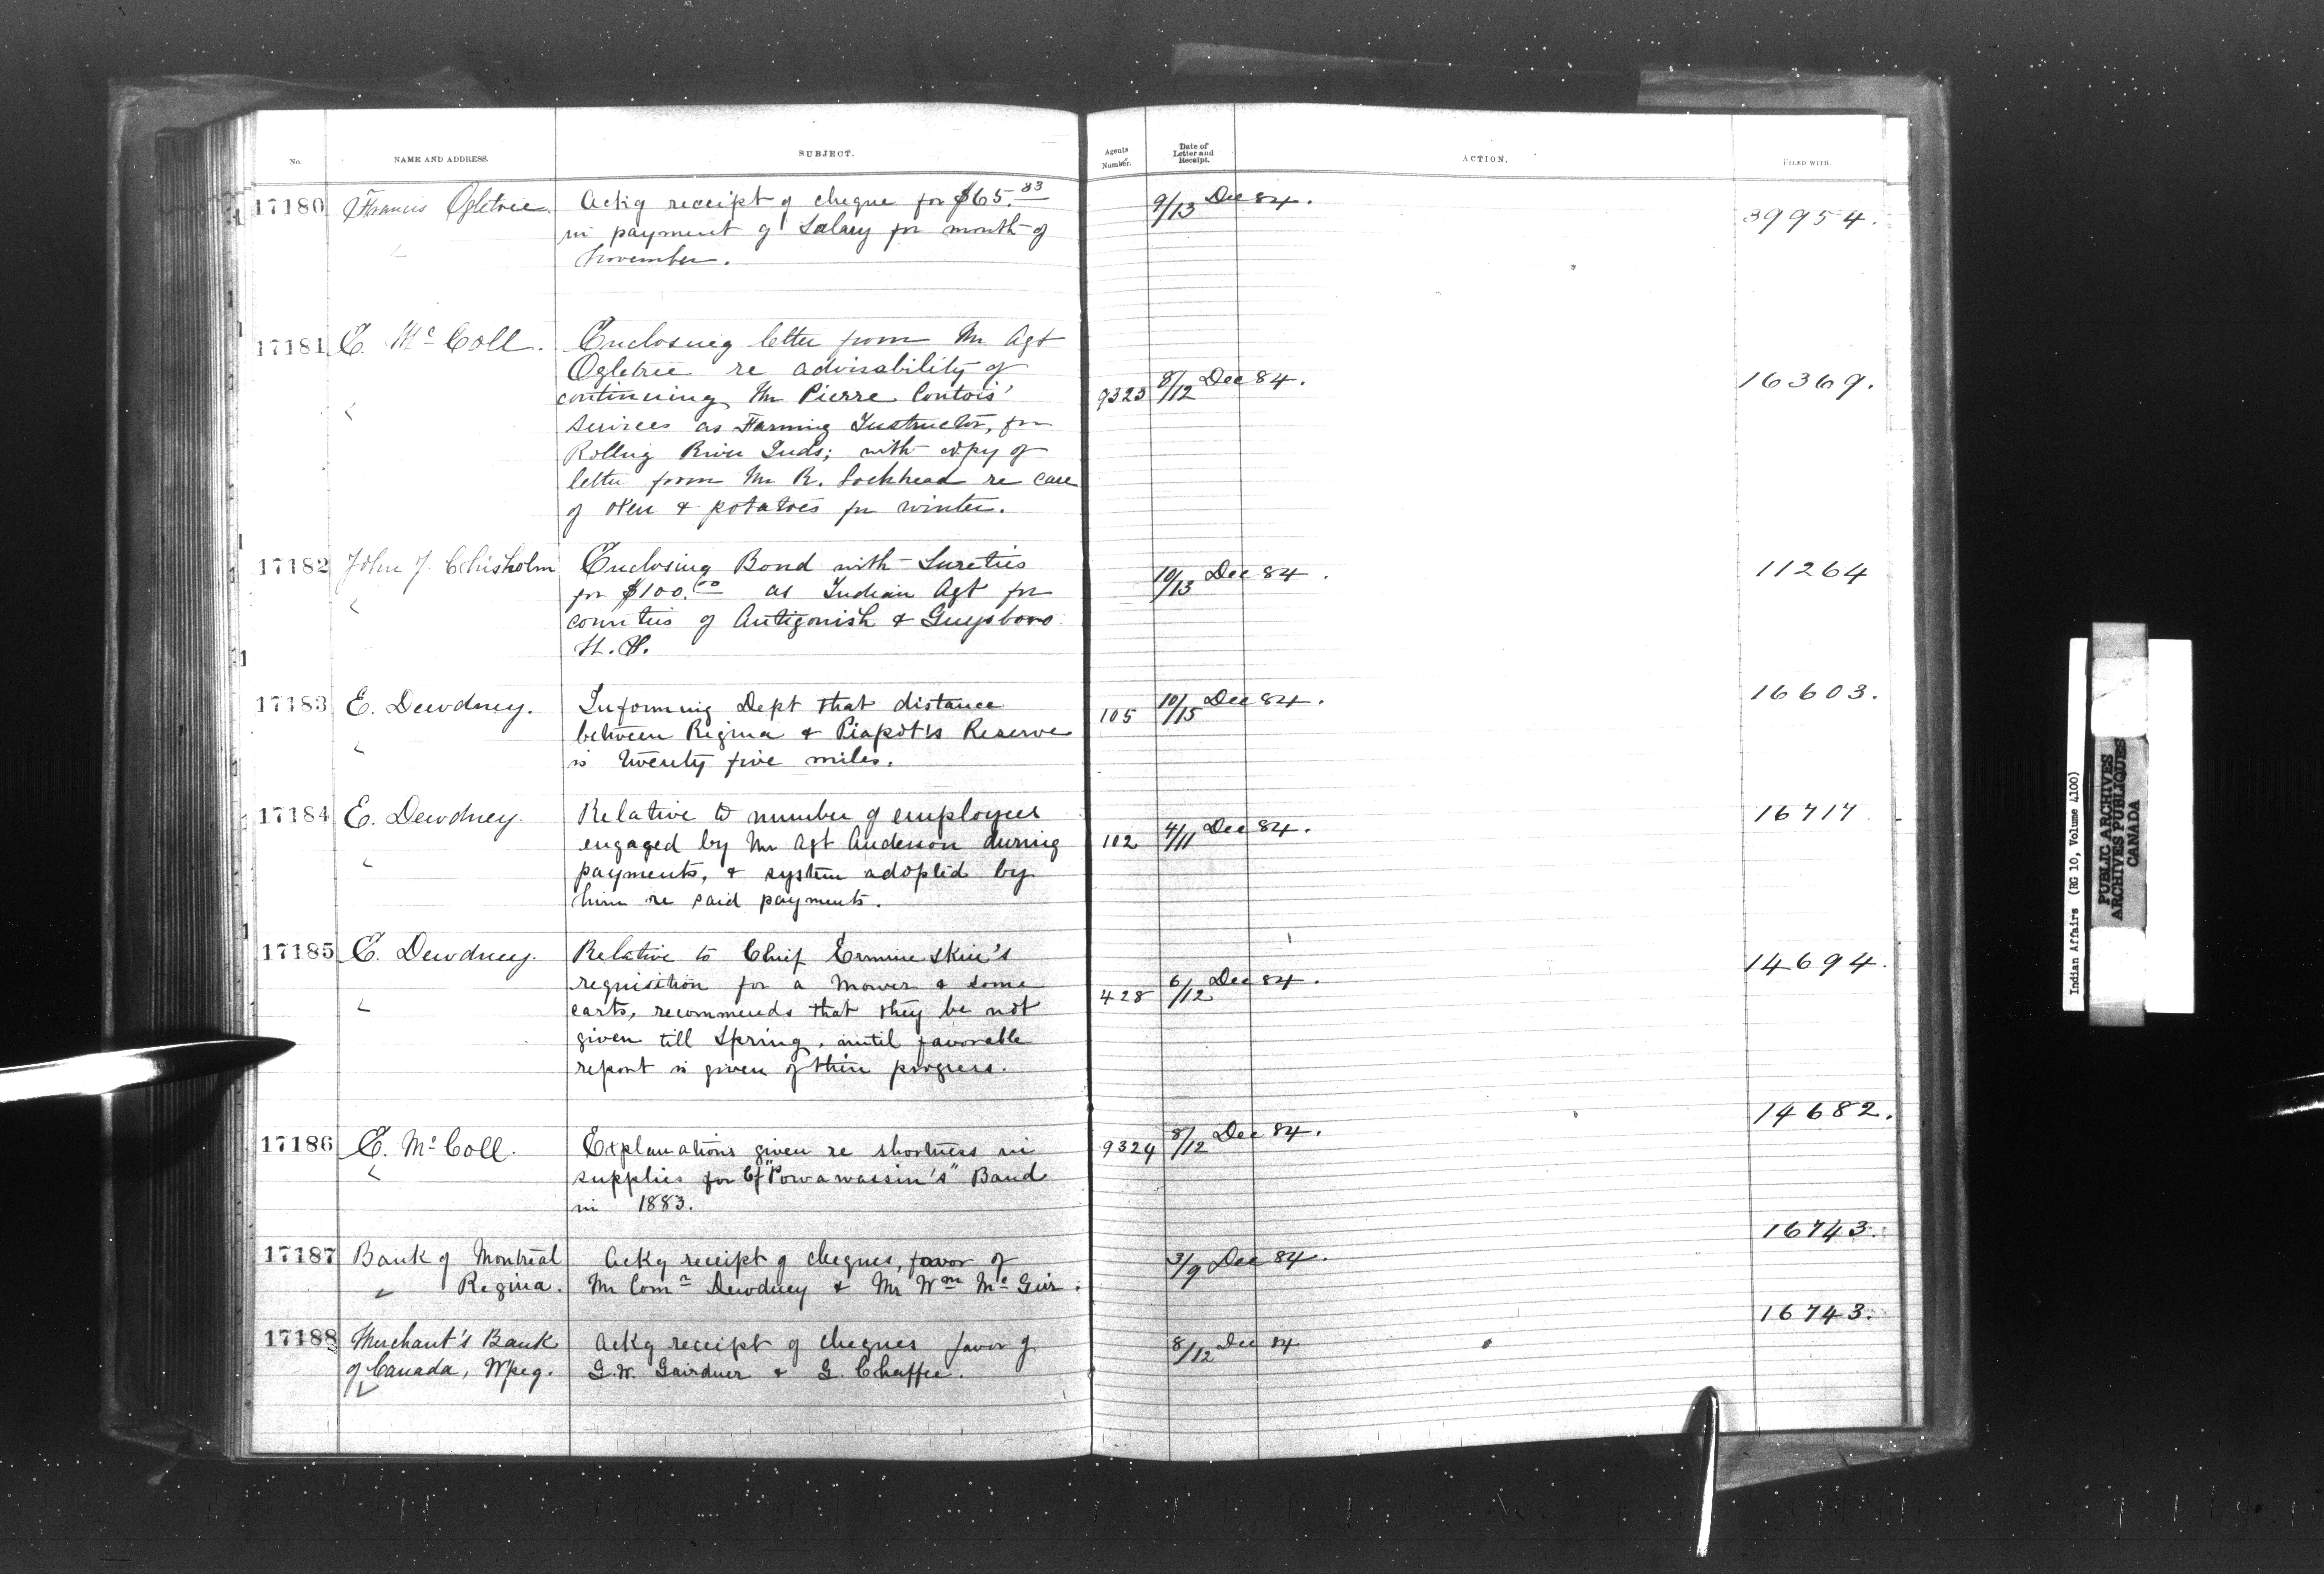 No. NAME AND ADDRESS. SUBJECT. Agents Number. Date of Letter and Receipt. ACTION. FILED WITH.
17180 Francis Ogletree. Ackg receipt of cheque for $65.83 9/13 Dec 84. 39954.
in payment of Salary for month of
November.
17181 E. McColl. Enclosing letter from Mr Agt
Ogletree re advisability of
continuing Mr Pierre Contois' 9323 8/12 Dec 84. 16369.
Services as Farming Instructor, for
Rolling River Inds; with copy of
letter from Mr R. Lockhead re care
of oxen & potatoes for winter.
17182 John J. Chisholm Enclosing Bond with Sureties 10/13 Dec 84. 11264
for $100.00 as Indian Agt for
counties of Antigonish & Guysboro
N.S.
17183 E. Dewdney. Informing Dept that distance 105 10/15 Dec 84. 16603.
between Regina & Piapot's Reserve
is twenty five miles.
17184 E. Dewdney. Relative to number of employees 16717
engaged by Mr Agt Anderson during 102 4/11 Dec 84.
payments, & system adopted by
him re said payments.
17185 E. Dewdney. Relative to Chief Ermine Skin's 14694.
requisition for a Mower & some 428 6/12 Dec 84.
carts, recommends that they be not
given till Spring, until favorable
report is given of their progress.
17186 E. McColl. Explanations given re shortness in 9324 8/12 Dec 84. 14682.
supplies for Cf "Powawassin's" Band
in 1883.
17187 Bank of Montreal Ackg receipt of cheques, favor of 3/9 Dec 84. 16743.
" Regina. Mr Comr Dewdney & Mr Wm McGirr.
17188 Merchant's Bank Ackg receipt of cheques favor of 8/12 Dec 84 16743.
of Canada, Wpeg. G.W. Gairdner & G. Chaffee.
Indian Affairs (RG 10, Volume 4100)
PUBLIC ARCHIVES
ARCHIVES PUBLIQUES
CANADA